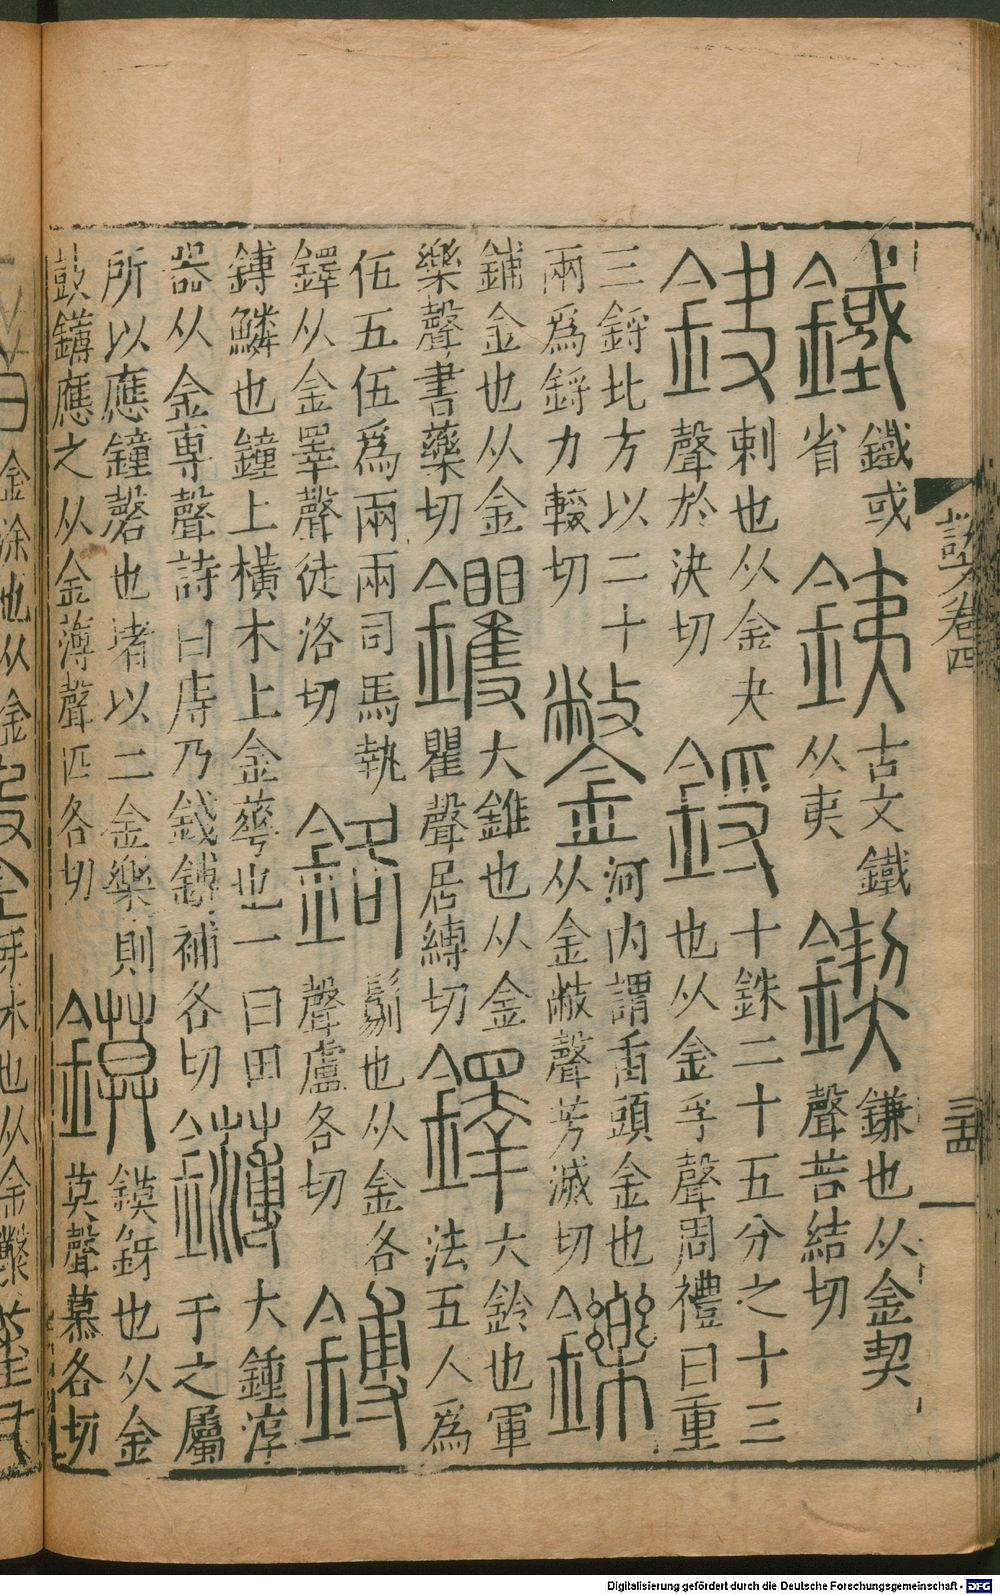 說文卷四
三五
鐵 鐵或省 銕 古文鐵从夷 鍥 鎌也从金契聲苦結切
鈌 刺也从金夬聲於決切 鋝 十銖二十五分之十三也从金寽聲周禮曰重
三鋝北方以二十兩爲鋝力輟切 鐅 河內謂臿頭金也从金敝聲芳滅切 鑠
鋪金也从金樂聲書藥切 钁 大錐也从金瞿聲居縛切 鐸 大鈴也軍法五人爲
伍五伍爲兩兩司馬執鐸从金睪聲徒洛切 鉻 鬄也从金各聲盧各切 鎛
鎛鱗也鐘上橫木上金蕚也一曰田器从金尃聲詩曰庤乃錢鎛補各切 鑮 大鍾淳于之屬
所以應鐘磬也堵以二金樂則鼓鑮應之从金薄聲匹各切 鏌 鏌釾也从金莫聲慕各切
Digitalisierung gefördert durch die Deutsche Forschungsgemeinschaft - DFG